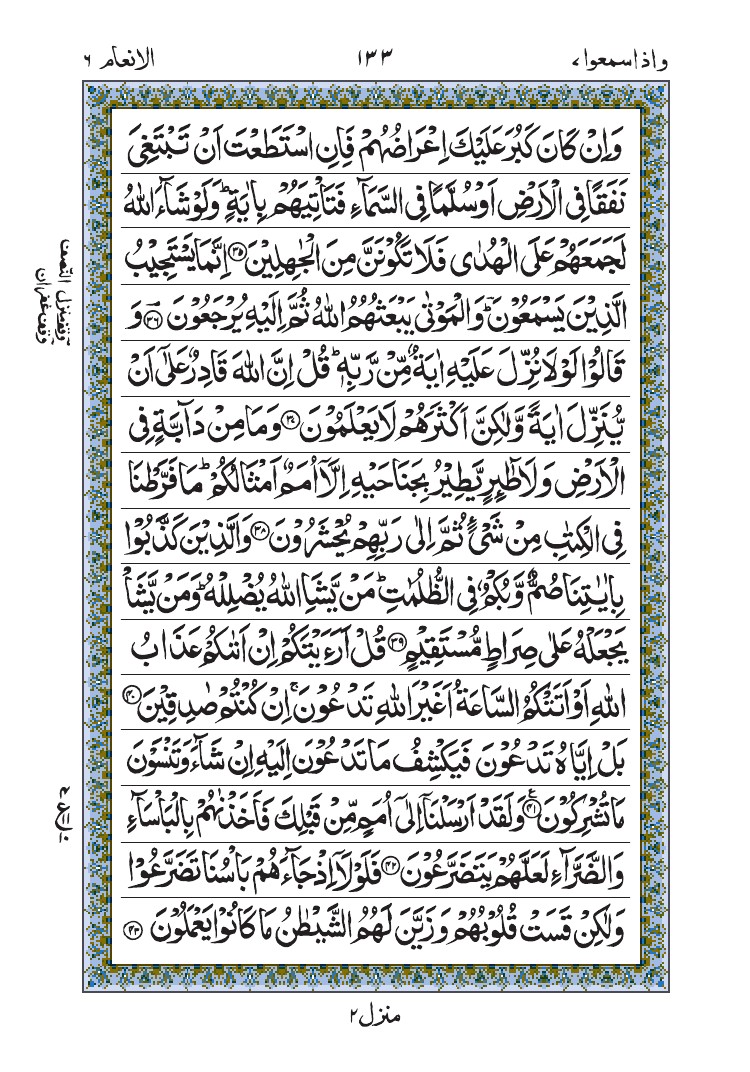 واذاسمعوا ٧
١٣٣
الانعام ٦
وَاِنْ كَانَ كَبُرَ عَلَيْكَ اِعْرَاضُهُمْ فَاِنِ اسْتَطَعْتَ اَنْ تَبْتَغِىَ
نَفَقًا فِى الْاَرْضِ اَوْ سُلَّمًا فِى السَّمَآءِ فَتَاْتِيَهُمْ بِاٰيَةٍ ؕ وَلَوْ شَآءَ اللّٰهُ
لَجَمَعَهُمْ عَلَى الْهُدٰى فَلَا تَكُوْنَنَّ مِنَ الْجٰهِلِيْنَ ﴿۳۵﴾ اِنَّمَا يَسْتَجِيْبُ
الَّذِيْنَ يَسْمَعُوْنَ ؔؕ وَالْمَوْتٰى يَبْعَثُهُمُ اللّٰهُ ثُمَّ اِلَيْهِ يُرْجَعُوْنَ ﴿۳۶﴾ وَ
قَالُوْا لَوْلَا نُزِّلَ عَلَيْهِ اٰيَةٌ مِّنْ رَّبِّهٖ ؕ قُلْ اِنَّ اللّٰهَ قَادِرٌ عَلٰٓى اَنْ
يُّنَزِّلَ اٰيَةً وَّلٰكِنَّ اَكْثَرَهُمْ لَا يَعْلَمُوْنَ ﴿۳۷﴾ وَمَا مِنْ دَآبَّةٍ فِى
الْاَرْضِ وَلَا طٰٓئِرٍ يَّطِيْرُ بِجَنَاحَيْهِ اِلَّاۤ اُمَمٌ اَمْثَالُكُمْ ؕ مَا فَرَّطْنَا
فِى الْكِتٰبِ مِنْ شَىْءٍ ثُمَّ اِلٰى رَبِّهِمْ يُحْشَرُوْنَ ﴿۳۸﴾ وَالَّذِيْنَ كَذَّبُوْا
بِاٰيٰتِنَا صُمٌّ وَّبُكْمٌ فِى الظُّلُمٰتِ ؕ مَنْ يَّشَاِ اللّٰهُ يُضْلِلْهُ ؕ وَمَنْ يَّشَاْ
يَجْعَلْهُ عَلٰى صِرَاطٍ مُّسْتَقِيْمٍ ﴿۳۹﴾ قُلْ اَرَءَيْتَكُمْ اِنْ اَتٰٮكُمْ عَذَابُ
اللّٰهِ اَوْ اَتَتْكُمُ السَّاعَةُ اَغَيْرَ اللّٰهِ تَدْعُوْنَ ۚ اِنْ كُنْتُمْ صٰدِقِيْنَ ﴿۴۰﴾
بَلْ اِيَّاهُ تَدْعُوْنَ فَيَكْشِفُ مَا تَدْعُوْنَ اِلَيْهِ اِنْ شَآءَ وَتَنْسَوْنَ
مَا تُشْرِكُوْنَ ﴿۴۱﴾ وَلَقَدْ اَرْسَلْنَاۤ اِلٰٓى اُمَمٍ مِّنْ قَبْلِكَ فَاَخَذْنٰهُمْ بِالْبَاْسَآءِ
وَالضَّرَّآءِ لَعَلَّهُمْ يَتَضَرَّعُوْنَ ﴿۴۲﴾ فَلَوْلَاۤ اِذْ جَآءَهُمْ بَاْسُنَا تَضَرَّعُوْا
وَلٰكِنْ قَسَتْ قُلُوْبُهُمْ وَزَيَّنَ لَهُمُ الشَّيْطٰنُ مَا كَانُوْا يَعْمَلُوْنَ ﴿۴۳﴾
وقف منزل النّصف
وقف غفران
منزل ٢